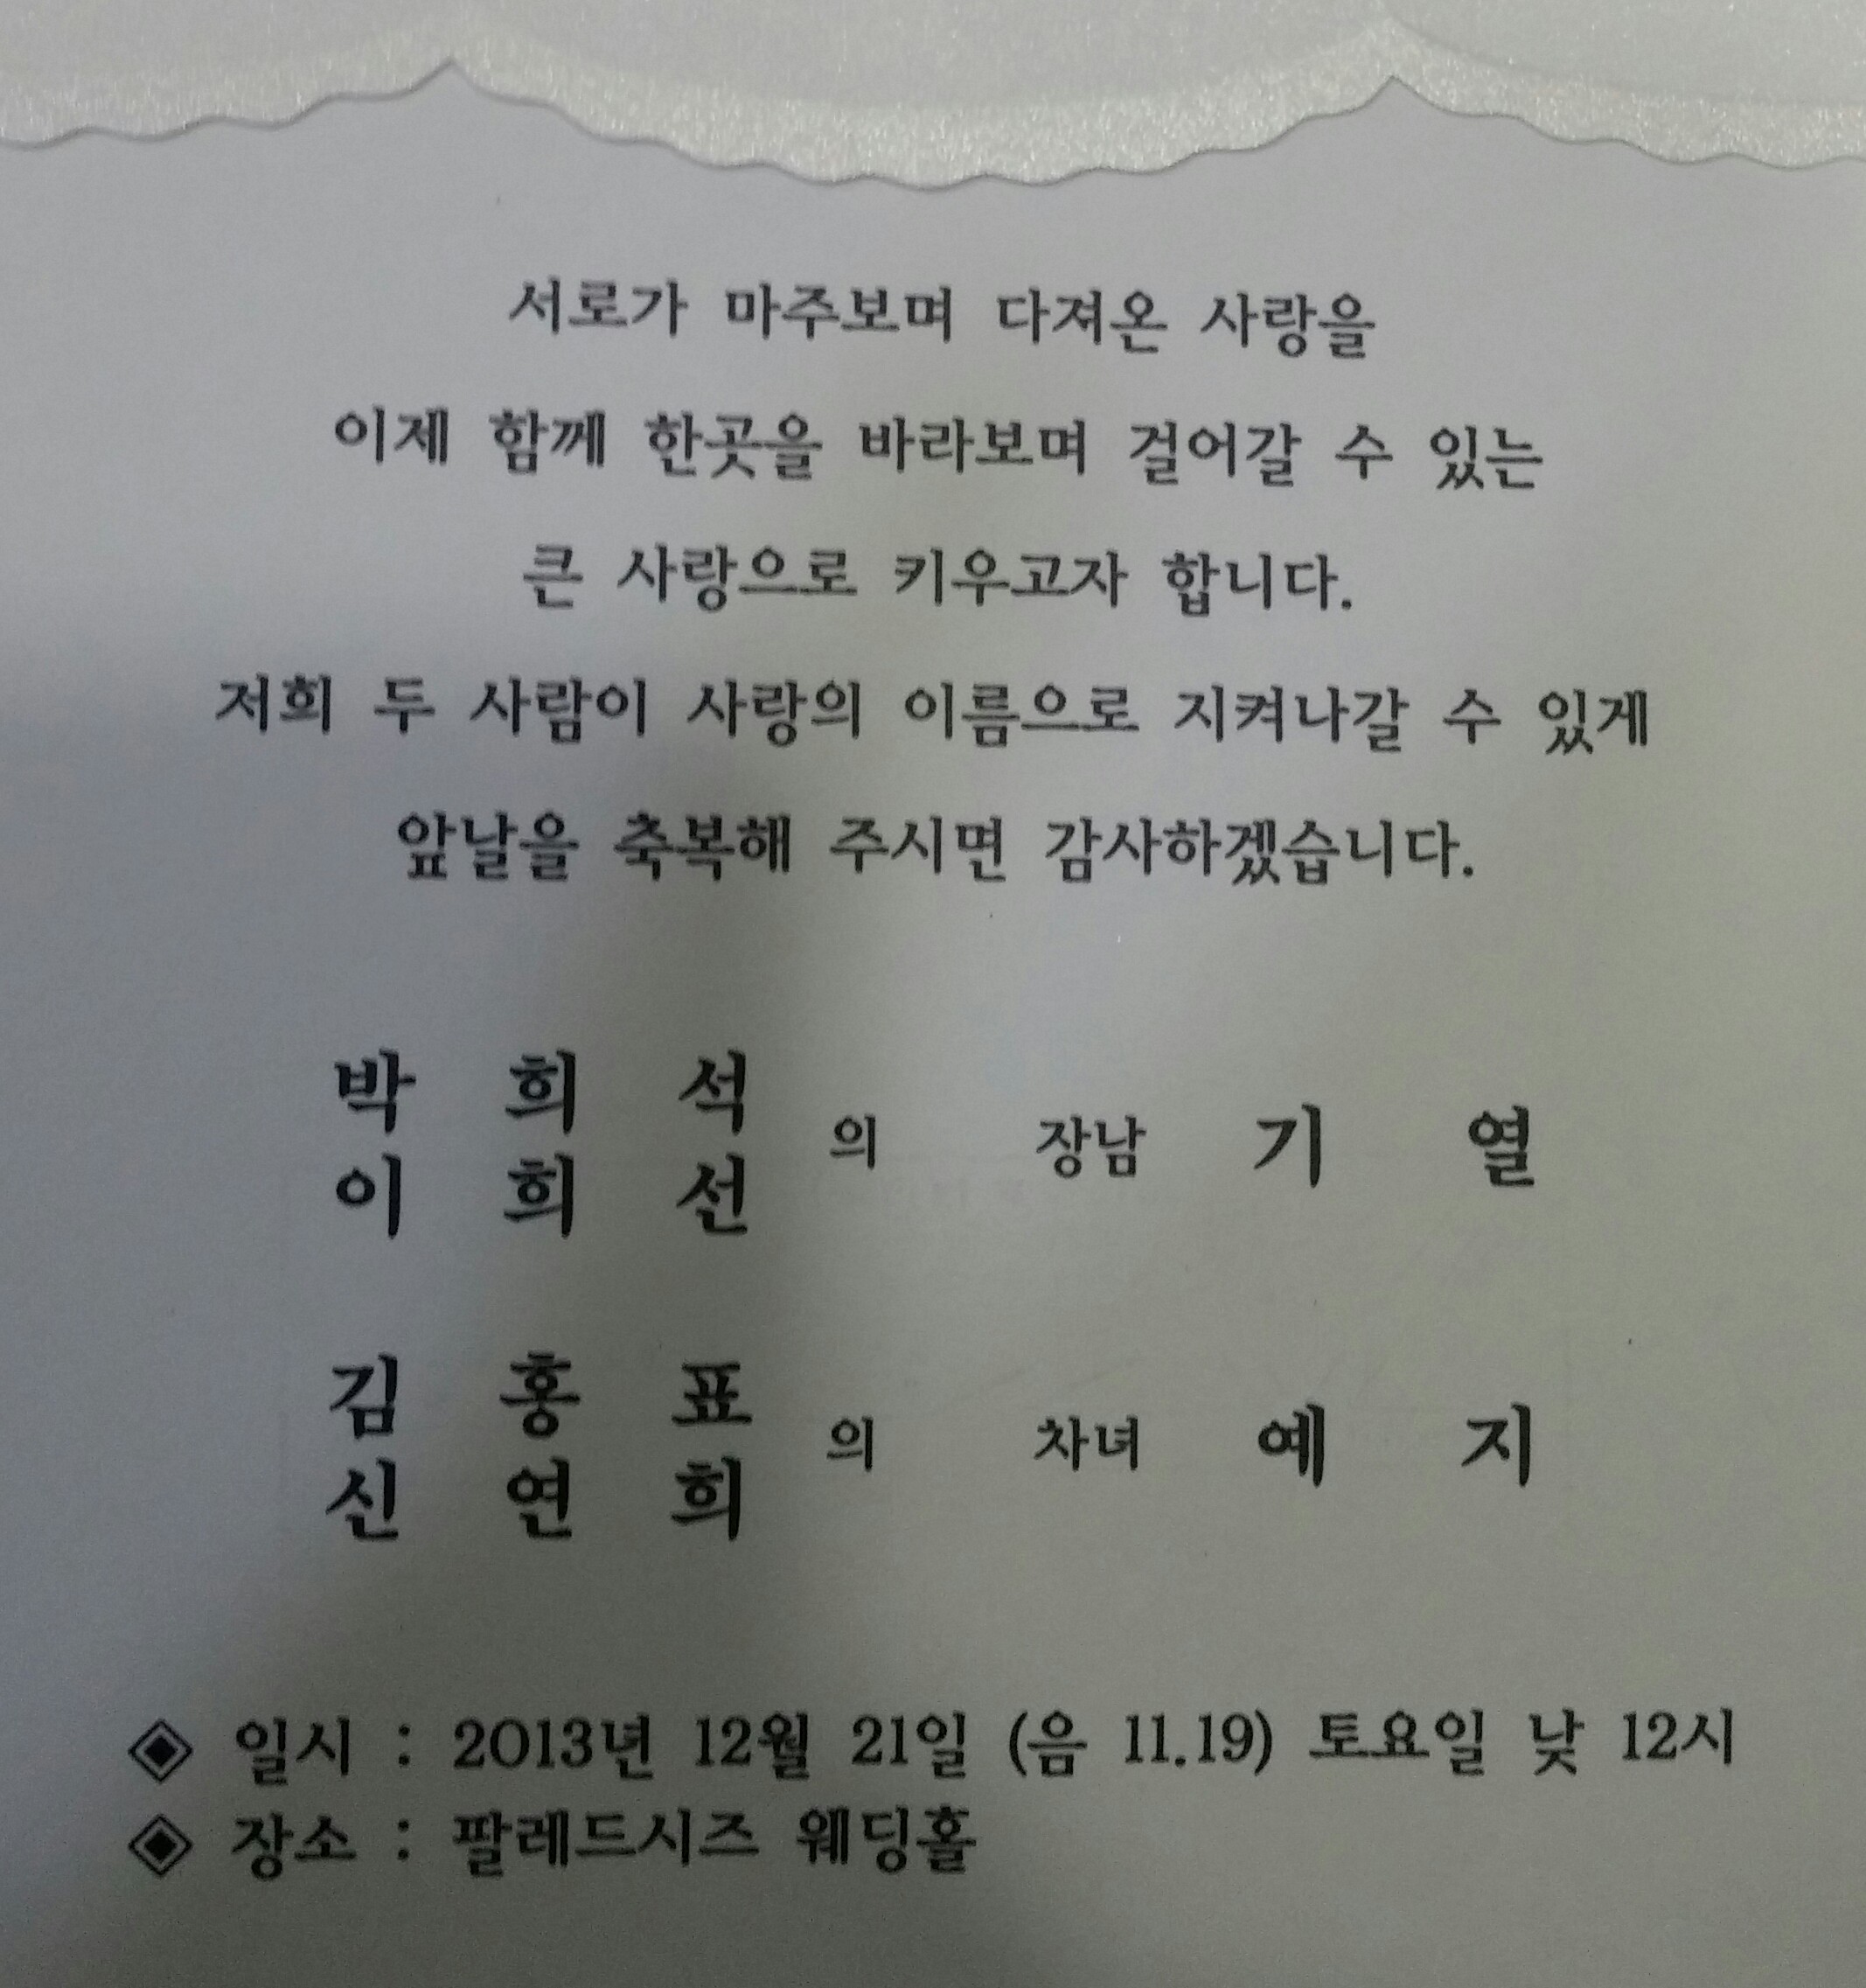 서로가 마주보며 다져온 사랑을
이제 함께 한곳을 바라보며 걸어갈 수 있는
큰 사랑으로 키우고자 합니다.
저희 두 사람이 사랑의 이름으로 지켜나갈 수 있게
앞날을 축복해 주시면 감사하겠습니다.
박 희 석
이 희 선
의 장남 기 열
김 홍 표
신 연 희
의 차녀 예 지
◈ 일시 : 2013년 12월 21일 (음 11.19) 토요일 낮 12시
◈ 장소 : 팔레드시즈 웨딩홀